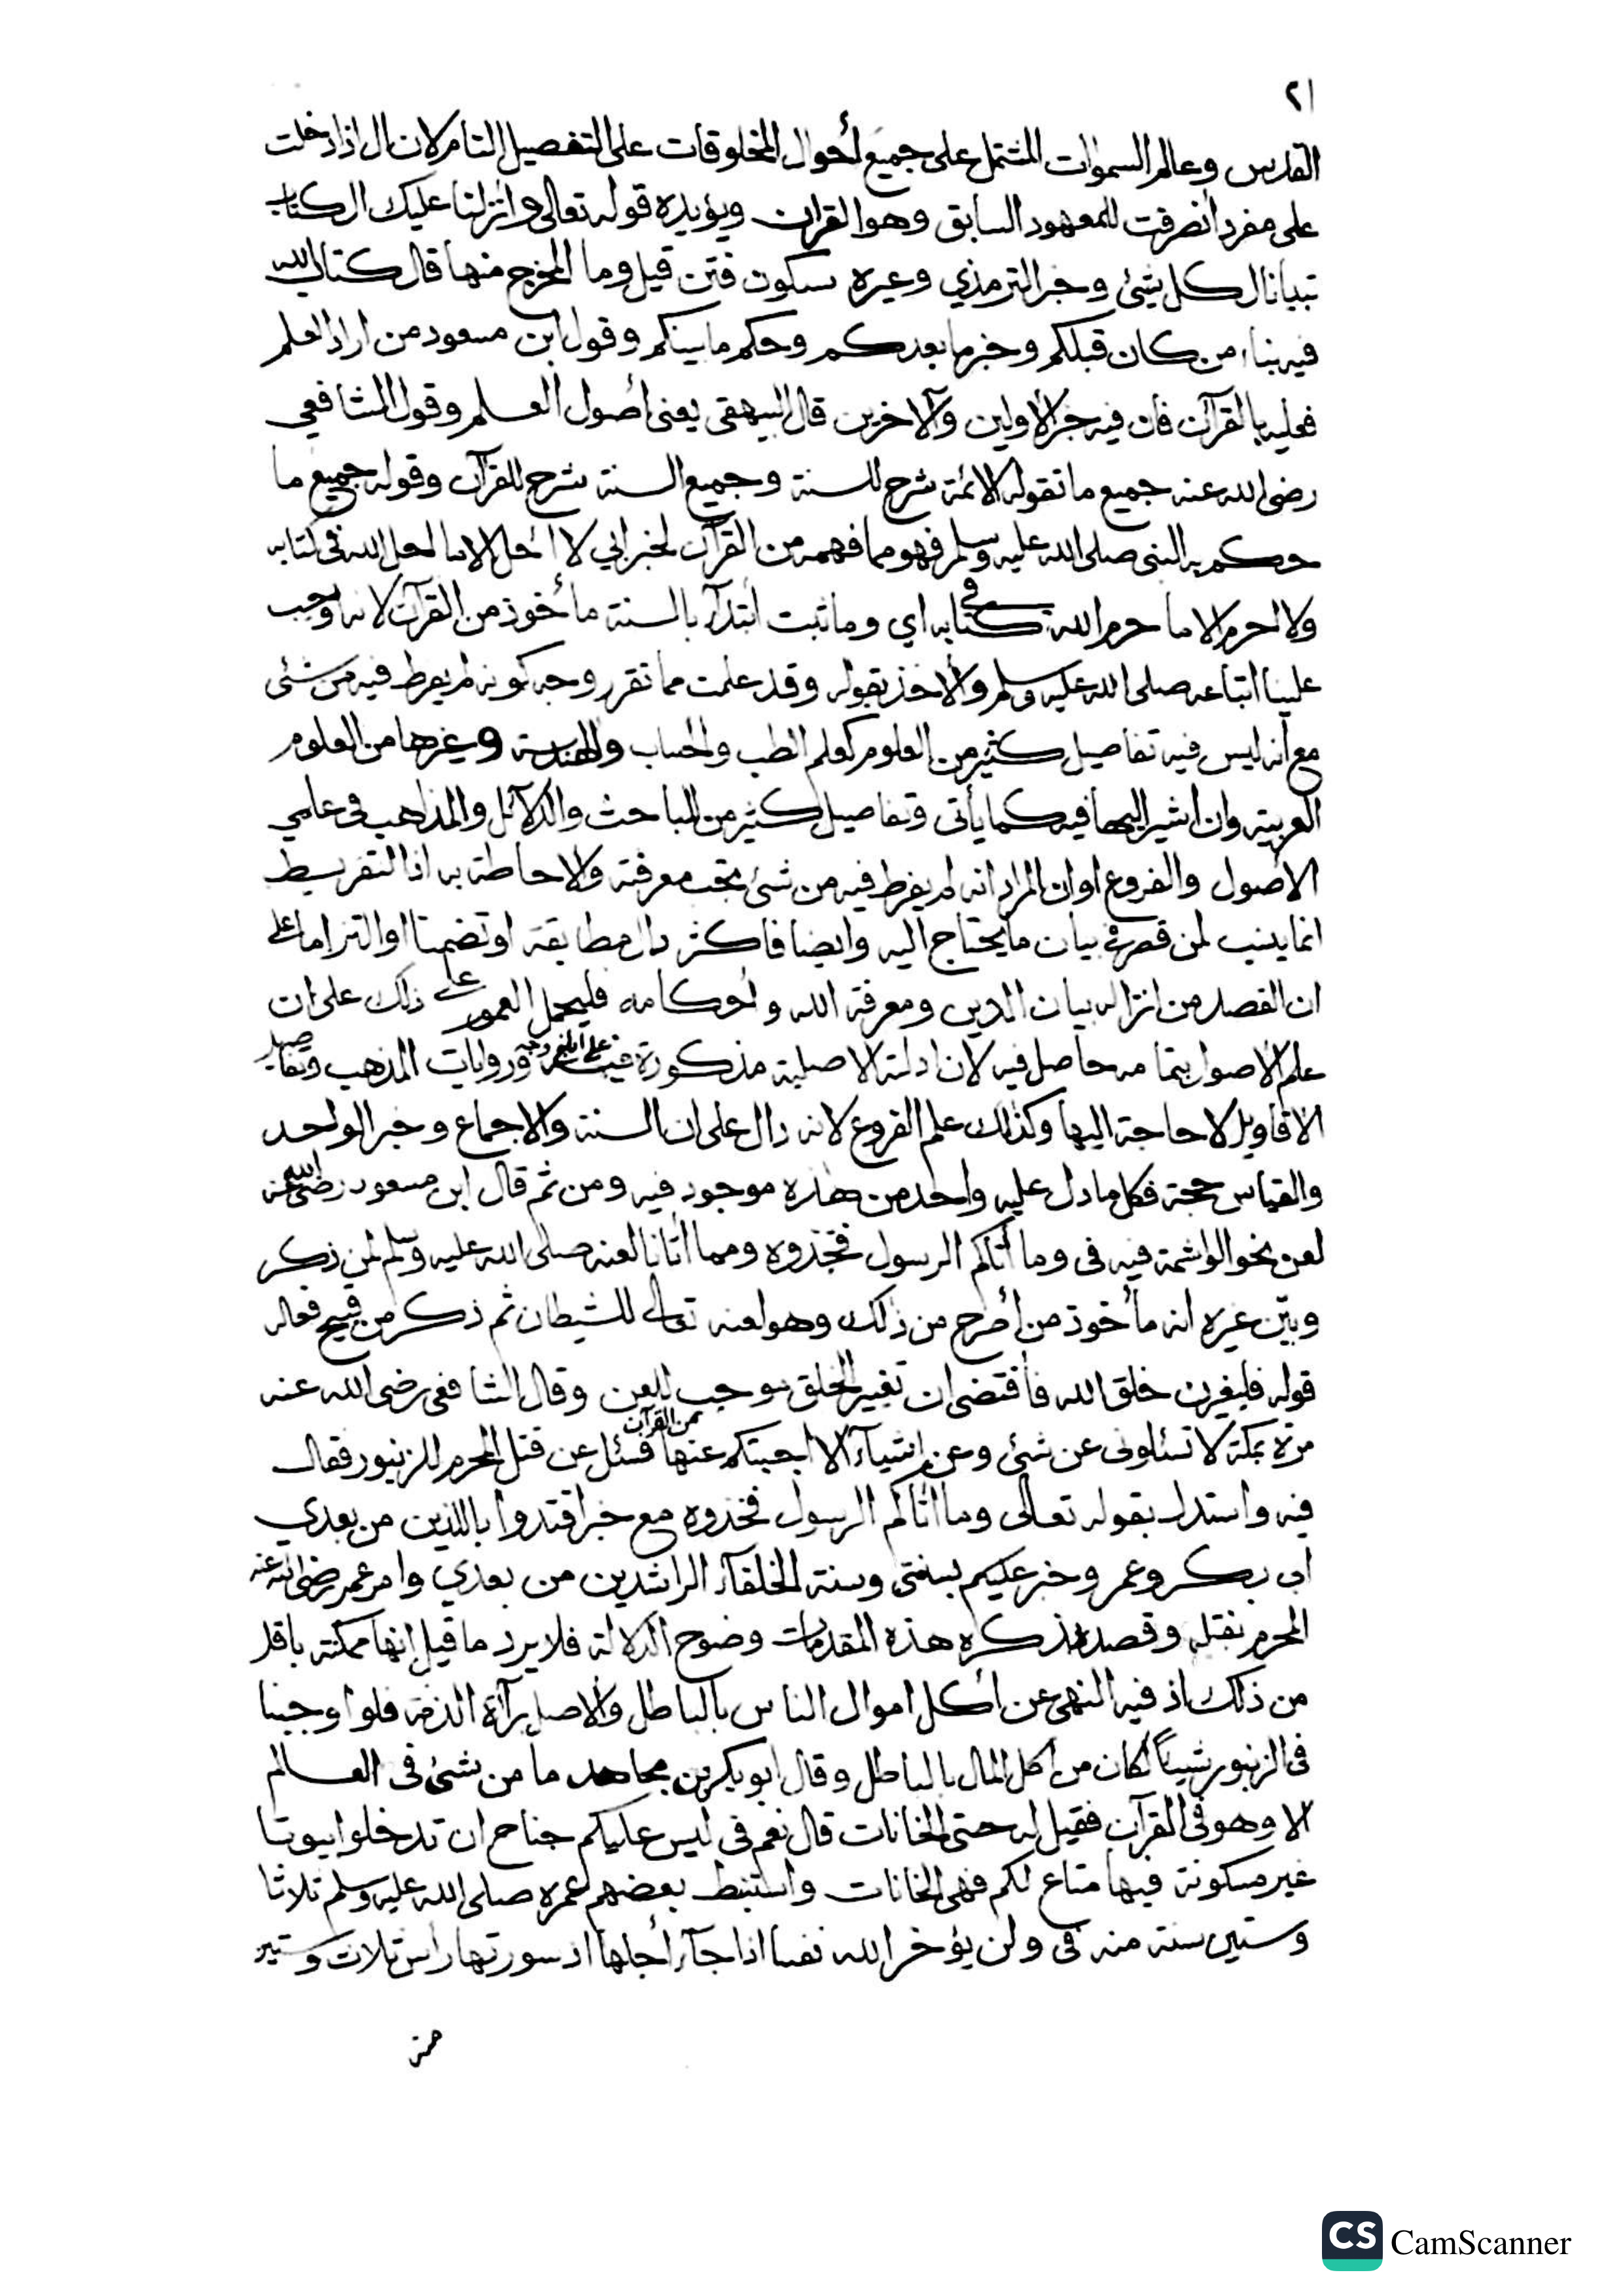 ٢١
القدس وعالم السموات المشتمل على جميع أحوال المخلوقات على التفصيل التام لان ال اذا دخلت
على مفرد أنصرفت للمعهود السابق وهو القران ويؤيده قوله تعالى وانزلنا عليك الكتاب
تبيانا لكل شئ وخبر الترمذي وغيره ستكون فتن قيل وما المخرج منها قال كتاب الله
فيه نباء من كان قبلكم وخبر ما بعدكم وحكم ما بينكم وقول ابن مسعود من اراد العلم
فعليه بالقرآن فان فيه خبر الاولين والآخرين قال البيهقى يعنى أصول العلم وقول الشافعي
رضى الله عنه جميع ما تقوله الائمة شرح للسنة وجميع السنة شرح للقرآن وقوله جميع ما
حكم به النبى صلى الله عليه وسلم فهو مما فهمه من القرآن لخبر اني لا احل الا ما احل الله فى كتابه
ولا احرم الا ما حرم الله فى كتابه اي وما ثبت ابتدآء بالسنة مأخوذ من القرآن لانه اوجب
علينا اتباعه صلى الله عليه وسلم والأخذ بقوله وقد علمت مما تقرر وجه كونه لم يفرط فيه من شئ
مع أنه ليس فيه تفاصيل كثير من العلوم كعلم الطب والحساب والهندسة وغيرها من العلوم
العربية وان اشير اليها فيه كما يأتى وتفاصيل كثير من المباحث والدلآئل والمذاهب فى علمي
الأصول والفروع اوان المراد انه لم يفرط فيه من شئ يجب معرفته والاحاطة به اذا التفريط
انما ينسب لمن قصر في بيان ما يحتاج اليه وايضا فاكثره دال مطابقة او تضمنا او التزاما على
ان القصد من انزاله بيان الدين ومعرفة الله واحكامه فليحمل العموم على ذلك على ان
علم الاصول بتمامه حاصل فيه لان ادلته الاصلية مذكورة فيه على ابلغ وجه وروايات المذهب وتفاصيل
الاقاويل لا حاجة اليها وكذلك علم الفروع لانه دال على ان السنة والاجماع وخبر الواحد
والقياس حجة فكل ما دل عليه واحد من هذه موجود فيه ومن ثم قال ابن مسعود رضى الله عنه
لعن نحو الواشمة فيه فى وما أتاكم الرسول فخذوه ومما أتانا لعنه صلى الله عليه وسلم لمن ذكر
وبيّن غيره انه مأخوذ من أصرح من ذلك وهو لعنه تعالى للشيطان ثم ذكر من قبيح فعاله
قوله فليغيرن خلق الله فاقتضى ان تغيير الخلق موجب للعن وقال الشافعى رضى الله عنه
مرة بمكة لا تسئلونى عن شئ وعن اشيآء الا اجبتكم عنها من القرآن فسئل عن قتل المحرم للزنبور فقال
فيه واستدل بقوله تعالى وما اتاكم الرسول فخذوه مع خبر اقتدوا باللذين من بعدي
ابى بكر وعمر وخبر عليكم بسنتى وسنة الخلفآء الراشدين من بعدي وامر عمر رضى الله عنه
المحرم بقتله وقصده بذكره هذه المقدمات وضوح الدلالة فلا يرد ما قيل إنها ممكنة باقل
من ذلك اذ فيه النهى عن أكل اموال الناس بالباطل والاصل برآءة الذمة فلو اوجبنا
فى الزنبور شيئاً لكان من أكل المال بالباطل وقال ابو بكر بن مجاهد ما من شئ فى العالم
الا وهو فى القرآن فقيل له حتى الخانات قال نعم فى ليس عليكم جناح ان تدخلوا بيوتا
غير مسكونة فيها متاع لكم فهى الخانات واستنبط بعضهم عمره صلى الله عليه وسلم ثلاثا
وستين سنة منه فى ولن يؤخر الله نفسا اذا جآء أجلها اذ سورتها رأس ثلاث وستين